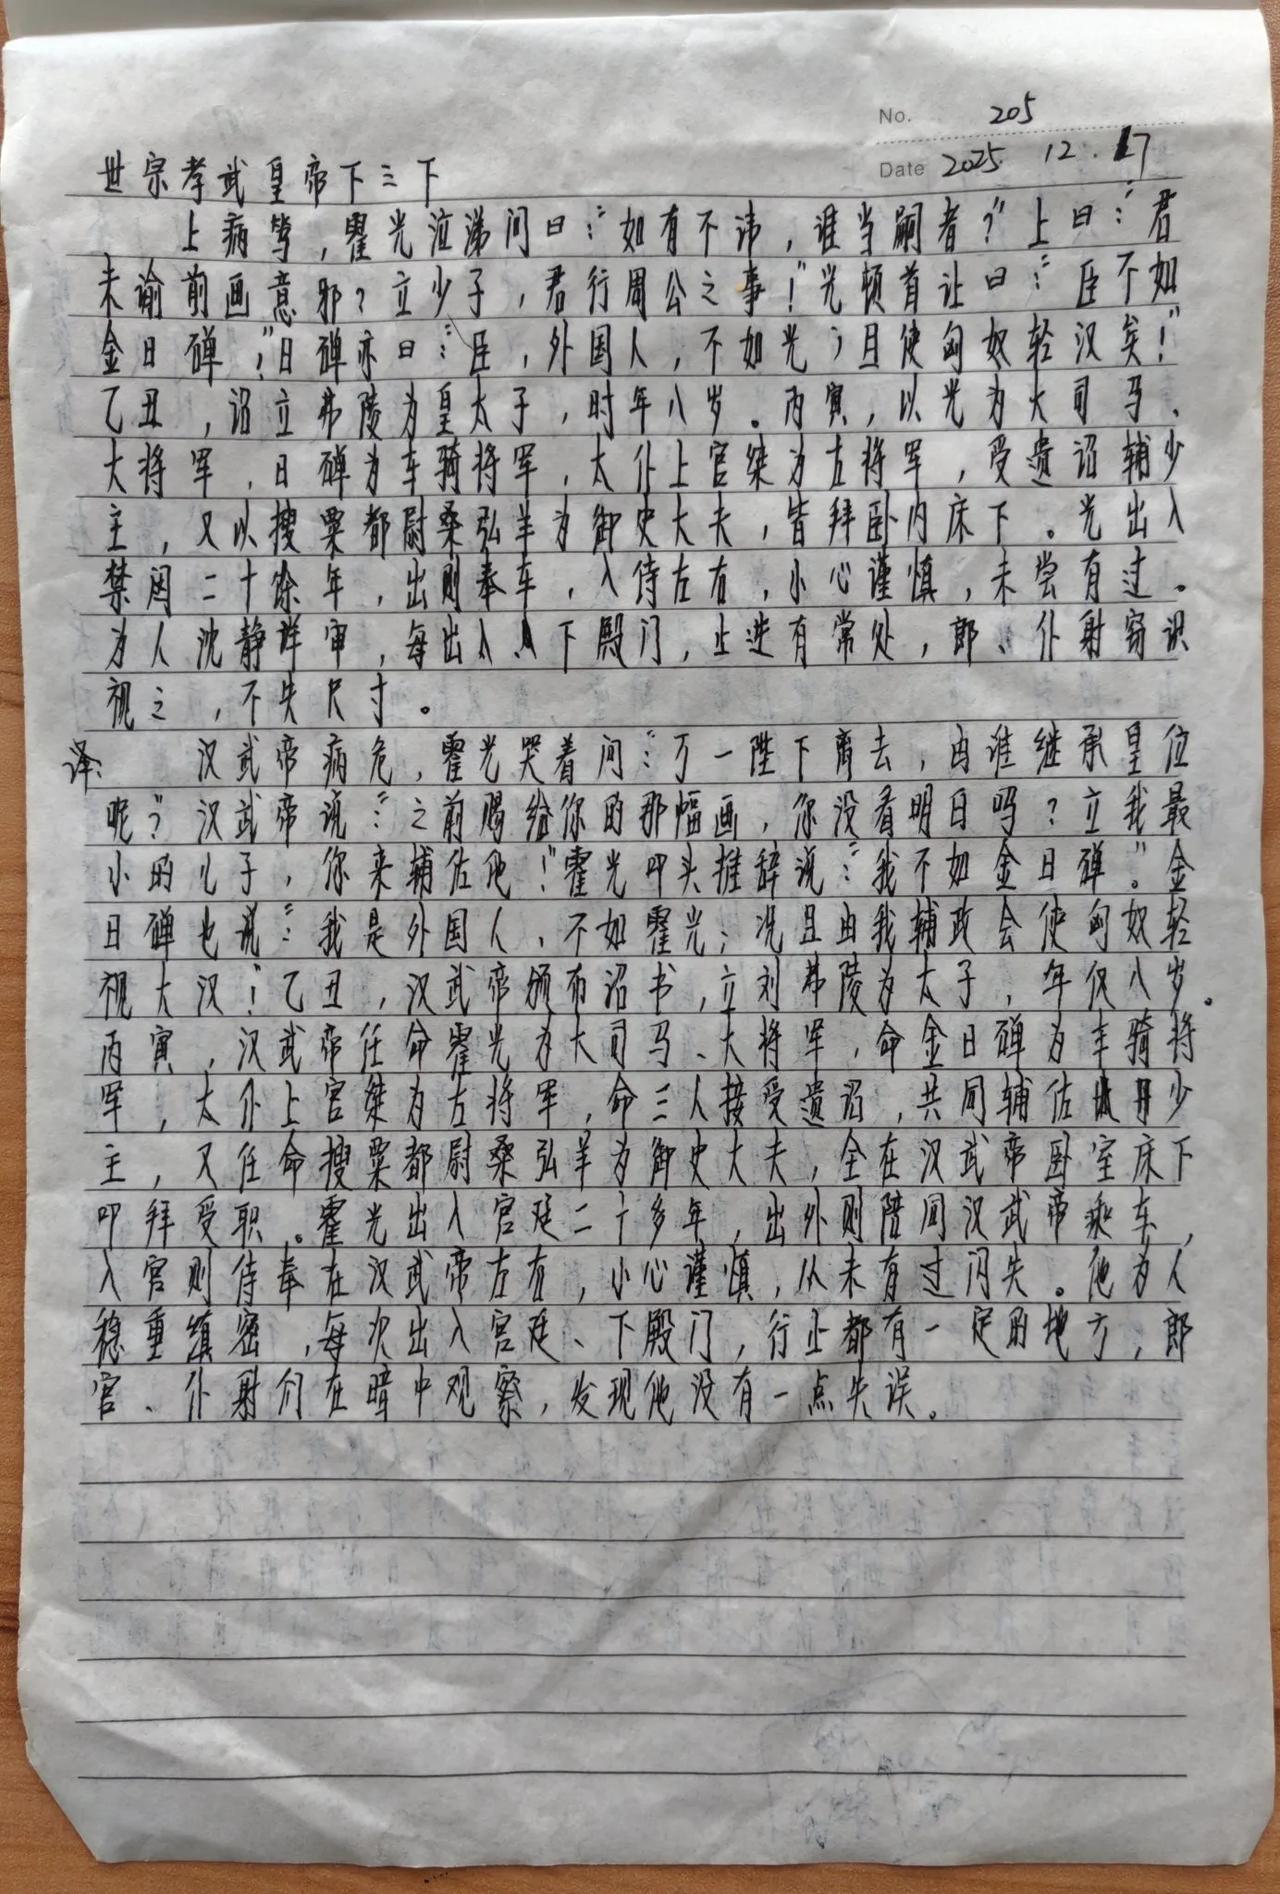 No. 205
Date 2025 12.17
世宗孝武皇帝下之下
上病笃，霍光泣涕问曰：“如有不讳，谁当嗣者？”上曰：“君
未谕前画意邪？立少子，君行周公之事！”光顿首让曰：“臣不如
金日磾！”日磾亦曰：“臣，外国人，不如光；且使匈奴轻汉矣！”
乙丑，诏立弗陵为皇太子，时年八岁。丙寅，以光为大司马、
大将军，日磾为车骑将军，太仆上官桀为左将军，受遗诏辅少
主，又以搜粟都尉桑弘羊为御史大夫，皆拜卧内床下。光出入
禁闼二十余年，出则奉车，入侍左右，小心谨慎，未尝有过。
为人沈静详审，每出入、下殿门，止进有常处，郎、仆射窃识
视之，不失尺寸。
译：汉武帝病危，霍光哭着问：“万一陛下离去，由谁继承皇位
呢？”汉武帝说：“之前赐给你的那幅画，你没看明白吗？立我最
小的儿子，你来辅佐他！”霍光叩头推辞说：“我不如金日磾。”金
日磾也说：“我是外国人，不如霍光；况且由我辅政会使匈奴轻
视大汉！”乙丑，汉武帝颁布诏书，立刘弗陵为太子，年仅八岁。
丙寅，汉武帝任命霍光为大司马、大将军，命金日磾为车骑将
军，太仆上官桀为左将军，命三人接受遗诏，共同辅佐少
主，又任命搜粟都尉桑弘羊为御史大夫，全在汉武帝卧室床下
叩拜受职。霍光出入宫廷二十多年，出外则陪同汉武帝乘车，
入宫则侍奉在汉武帝左右，小心谨慎，从未有过闪失。他为人
稳重缜密，每次出入宫廷、下殿门，行止都有一定的地方，郎
官、仆射们在暗中观察，发现他没有一点失误。